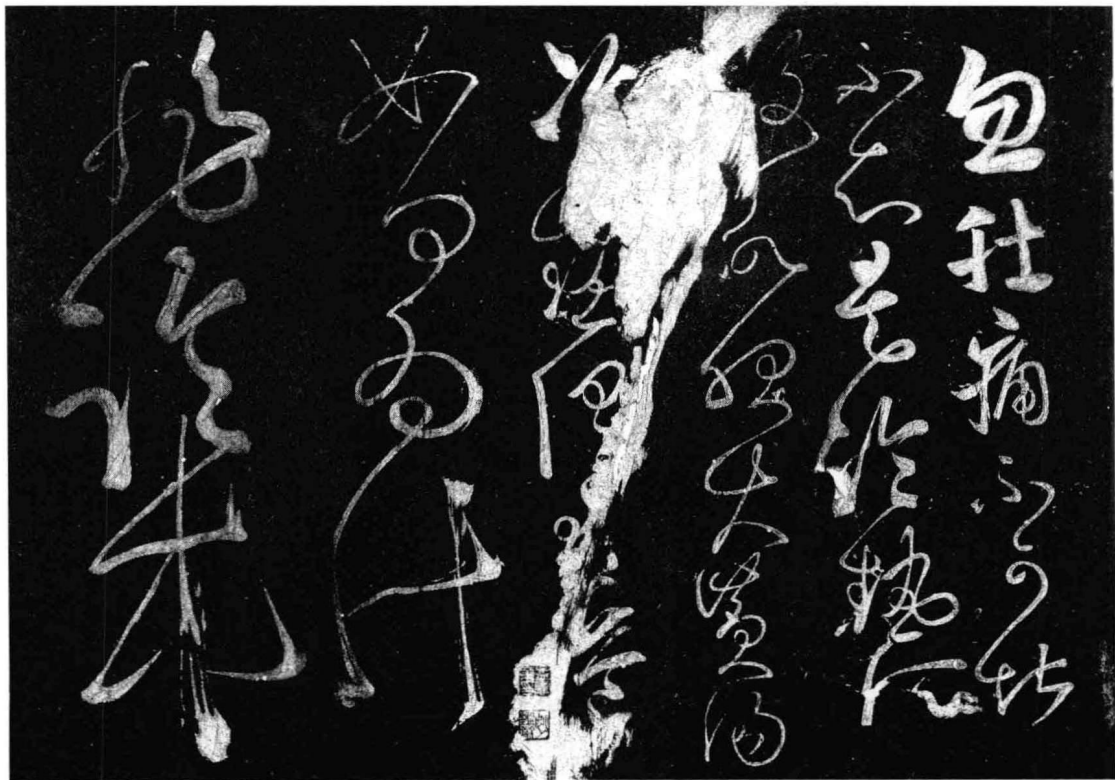 忽肚痛不可堪
不知是冷熱所
致欲服大黃湯
冷熱俱有益
如何為計